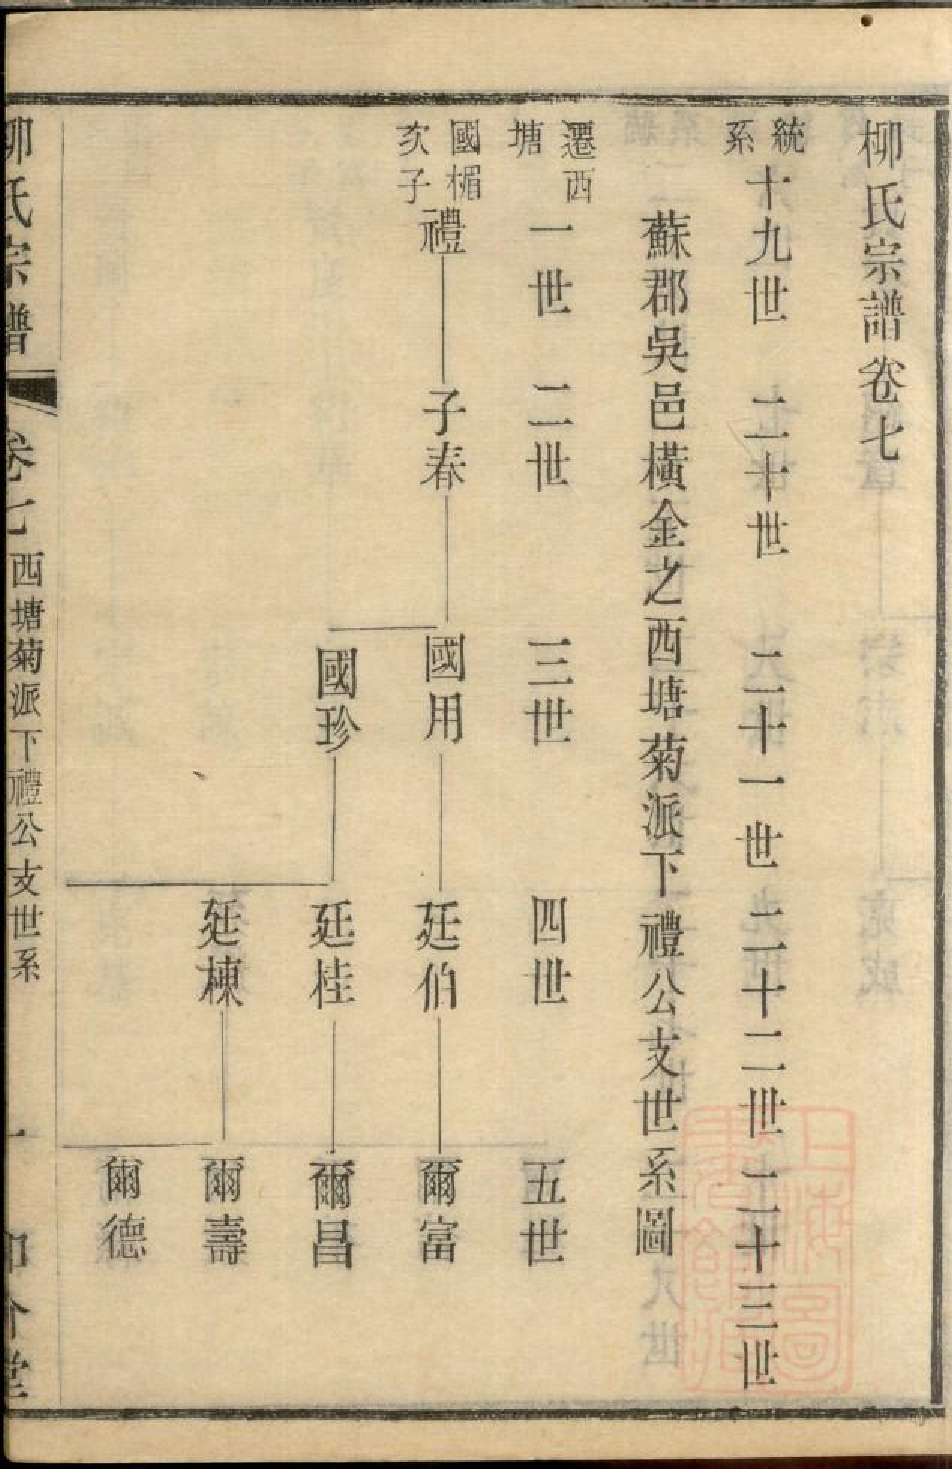 柳氏宗譜卷七
統系十九世 二十世 二十一世 二十二世 二十三世
蘇郡吳邑橫金之西塘菊派下禮公支世系圖
遷西塘 一世 二世 三世 四世 五世
國楣次子禮 子春 國用 廷伯 爾富
國珍 廷桂 爾昌
廷棟 爾壽
爾德
柳氏宗譜 卷七 西塘菊派下禮公支世系 一
上海圖書館藏